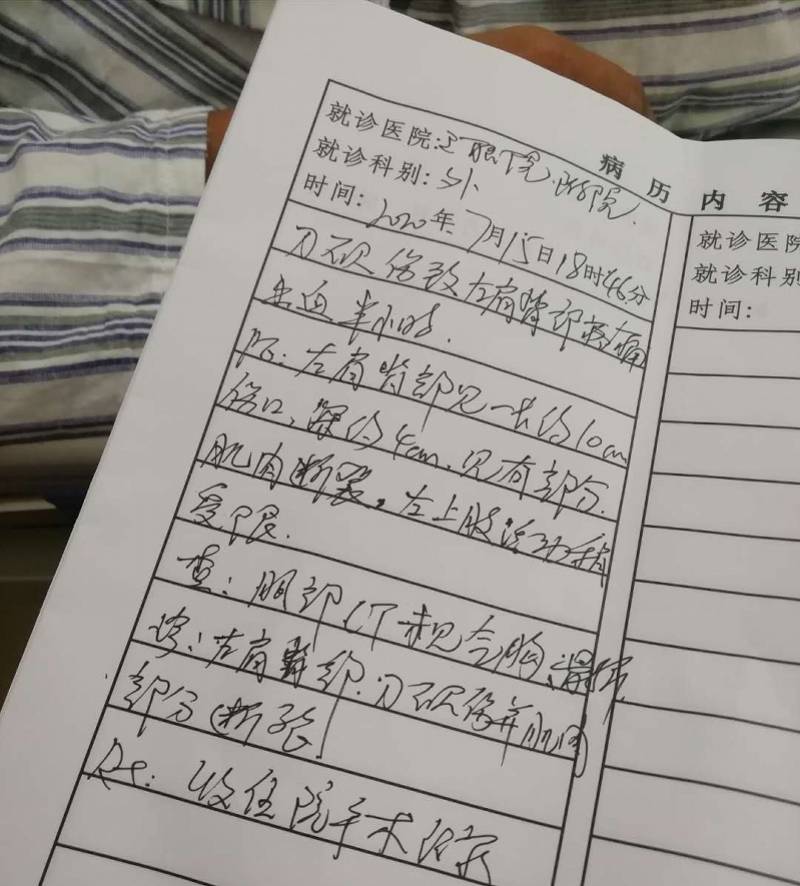 病历内容
就诊医院:
就诊科别:外
时间:2020年7月15日18时46分
刀砍伤致左肩背部疼痛
出血半小时.
PE:左肩背部见一长约10cm
伤口,深约4cm.见有部分
肌肉断裂。左上肢活动稍
受限.
查:胸部CT未见气胸、
诊:左肩背部刀砍伤并肌肉
部分断裂
Rx:收住院手术治疗
就诊医院
就诊科别
时间: